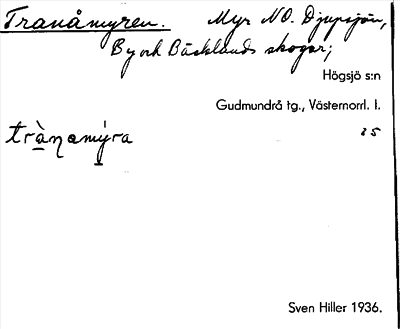 Tranåmyren. Myr NO. Djupsjön,
By och Bäcklands skogar;
Högsjö s:n
Gudmundrå tg., Västernorrl. l.
tràṉamýra 25
Sven Hiller 1936.